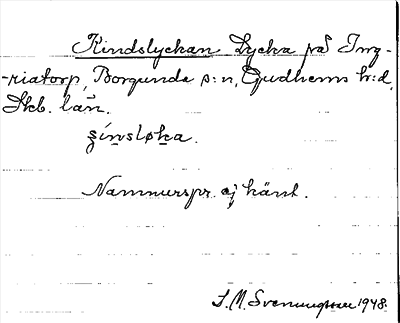 Kindslyckan Lycka på Ing-
-riatorp, Borgunda s:n, Gudhems h:d,
Skb. län.
ʒínsløka.
Namnurspr. ej känt.
S. M. Svenungsson 1948.